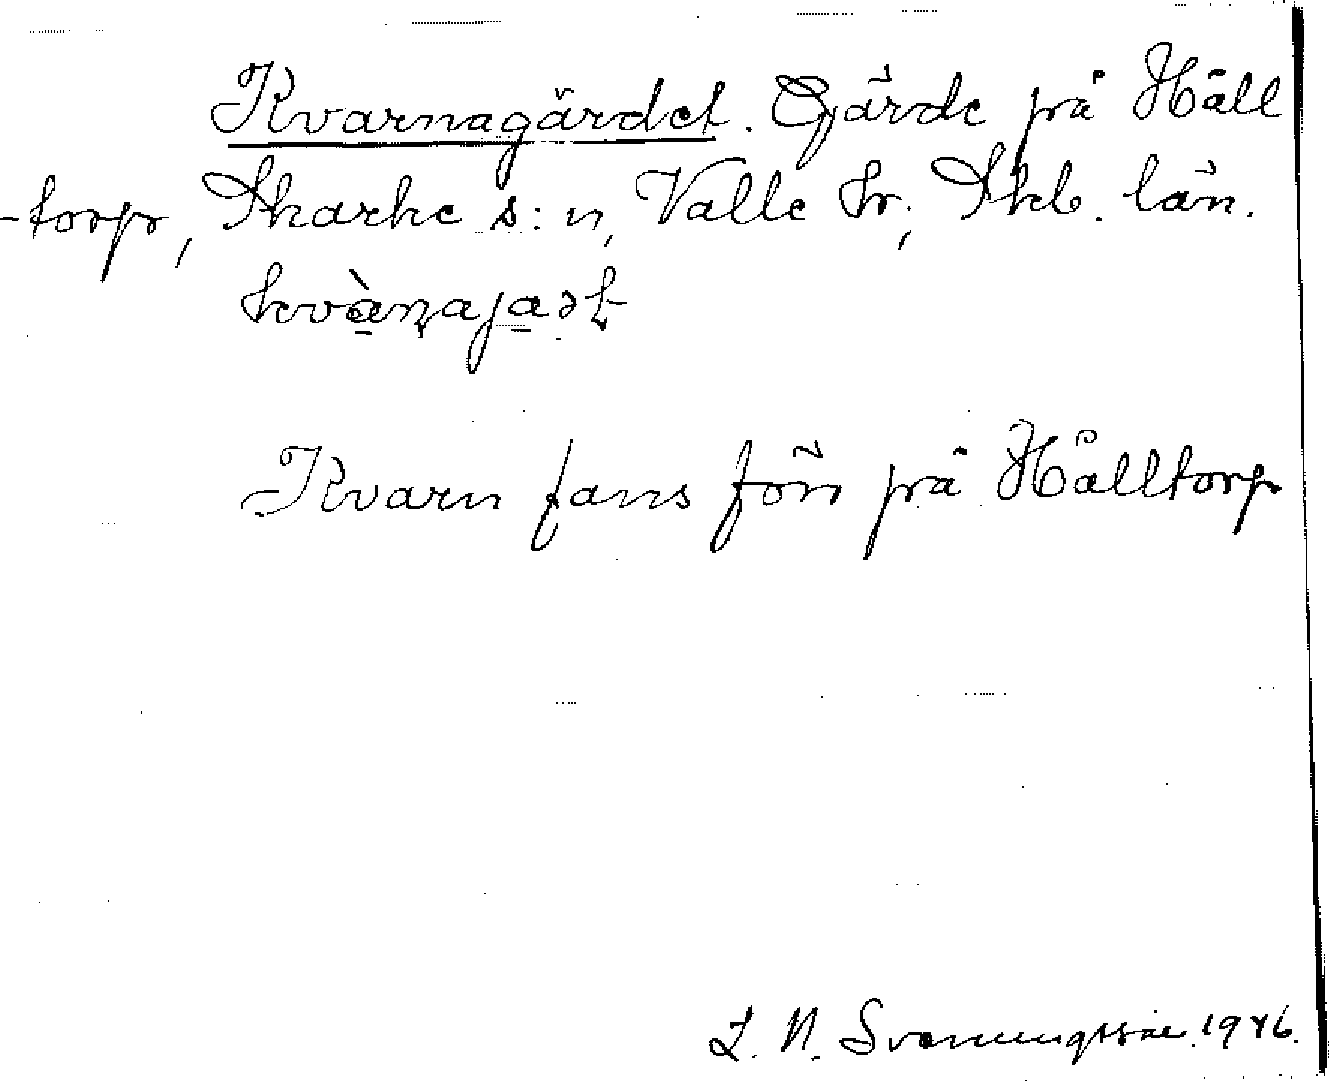 Kvarnagärdet. Gärde på Håll
-torp, Skarke s:n, Valle hr, Skb. län.
kvànajast
Kvarn fans förr på Hålltorp
L. N. Svanungsson. 1946.